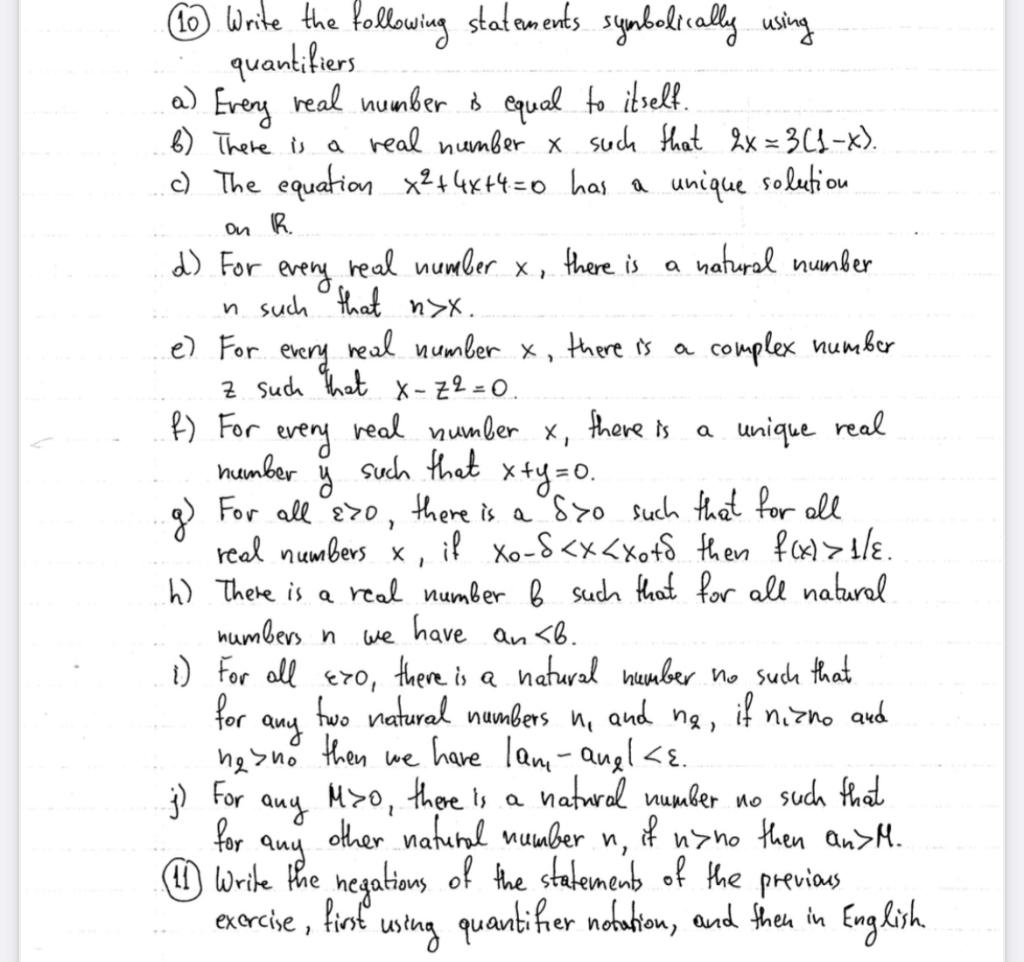 10 Write the following statements symbolically using
quantifiers
a) Every real number is equal to itself.
b) There is a real number x such that 2x = 3(1-x).
c) The equation x²+4x+4=0 has a unique solution
on ℝ.
d) For every real number x, there is a natural number
n such that n>x.
e) For every real number x, there is a complex number
z such that x - z² = 0.
f) For every real number x, there is a unique real
number y such that x+y=0.
g) For all ε>0, there is a δ>0 such that for all
real numbers x, if x₀-δ<x<x₀+δ then f(x)>1/ε.
h) There is a real number b such that for all natural
numbers n we have aₙ<b.
i) For all ε>0, there is a natural number n₀ such that
for any two natural numbers n₁ and n₂, if n₁>n₀ and
n₂>n₀ then we have |aₙ₁ - aₙ₂| < ε.
j) For any M>0, there is a natural number n₀ such that
for any other natural number n, if n>n₀ then aₙ>M.
11 Write the negations of the statements of the previous
exercise, first using quantifier notation, and then in English.